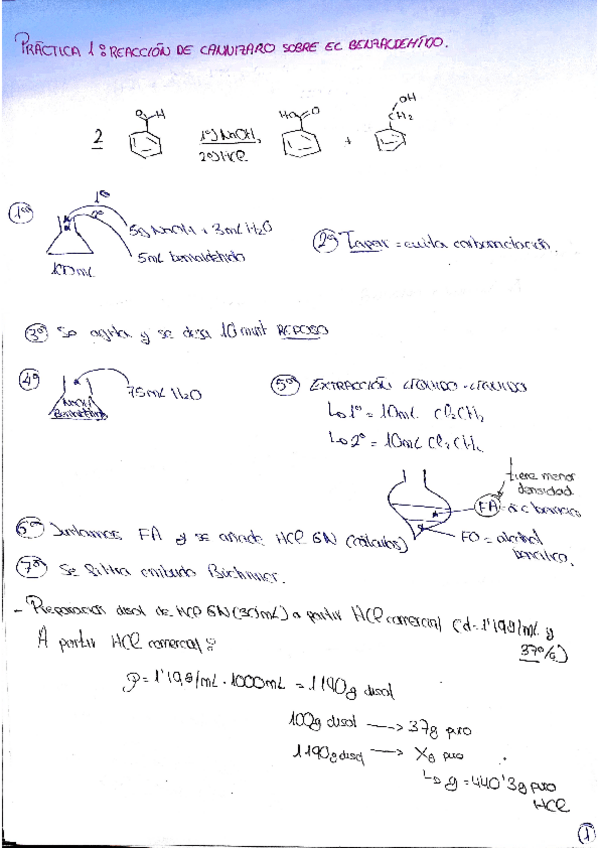 PRÁCTICA 1: REACCIÓN DE CANNIZARO SOBRE EL BENZALDEHÍDO.
O H HO O OH
CH2
2 1º) NaOH, +
2º) HCl
1º) 1º
2º 5g NaOH + 3mL H2O
5mL benzaldehído
100mL
2º) Tapar = evita carbonatación.
3º) Se agita y se deja 10 min REPOSO
4º) 75mL H2O
NaOH
Benzaldehído
5º) EXTRACCIÓN LÍQUIDO-LÍQUIDO
↳ 1º = 10mL Cl2CH2
↳ 2º = 10mL Cl2CH2
tiene menor
densidad
FA = ác benzoico
FO = alcohol
bencílico.
6º) Juntamos FA y se añade HCl 6N (cálculos)
7º) Se filtra embudo Büchner.
- Preparación disol de HCl 6N (30mL) a partir HCl comercial (d=1'19g/mL y
37%)
A partir HCl comercial:
1'19g/mL · 1000mL = 1190g disol
100g disol → 37g puro
1190g disol → Xg puro
↳ g = 440'3g puro
HCl
1